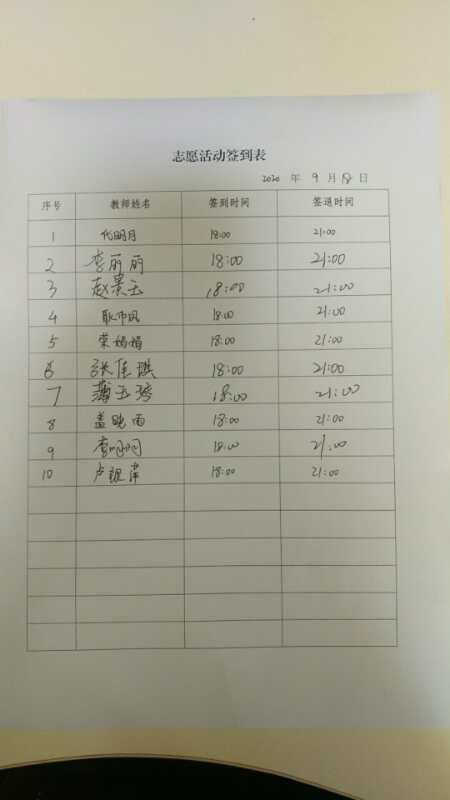 志愿活动签到表
2020 年 9 月 18 日
序号 教师姓名 签到时间 签退时间
1 代明月 18:00 21:00
2 李丽丽 18:00 21:00
3 赵景玉 18:00 21:00
4 18:00 21:00
5 荣娟娟 18:00 21:00
6 张佳琪 18:00 21:00
7 薄玉琴 18:00 21:00
8 孟晓雨 18:00 21:00
9 18:00 21:00
10 18:00 21:00